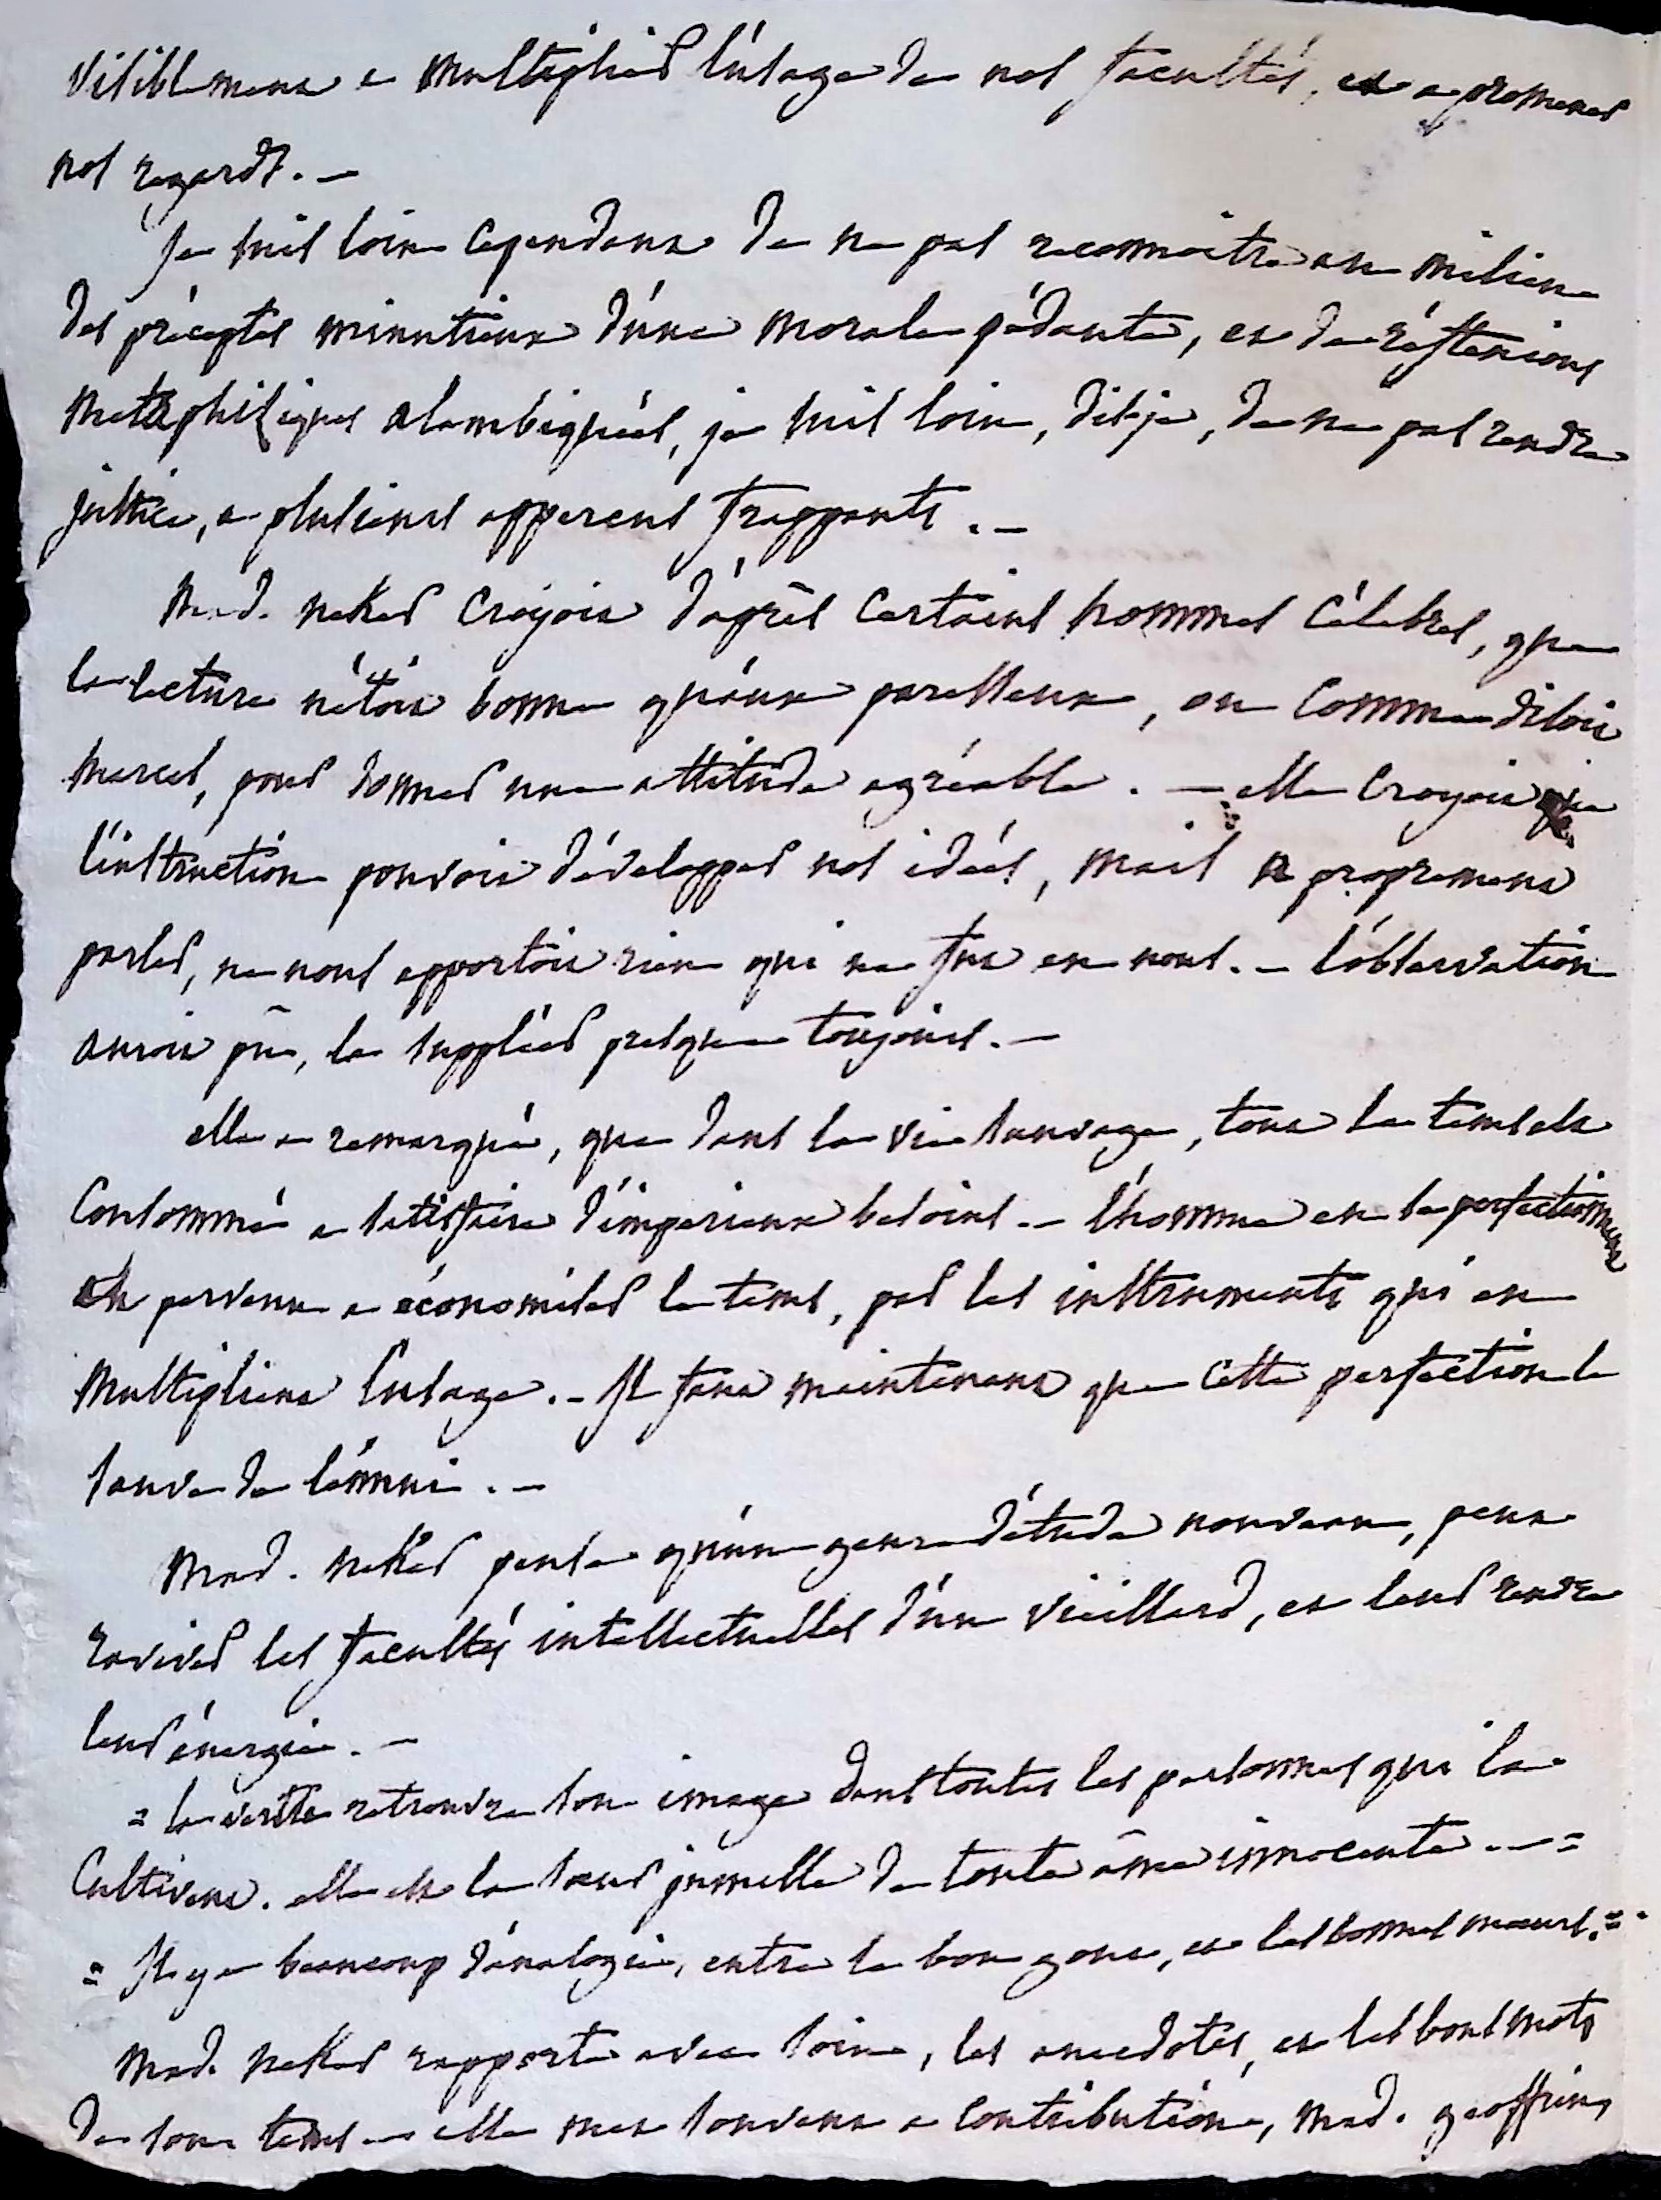 visiblement a multiplier l'usage de nos facultés, et a promener
nos regards. —
Je suis loin cependant de ne pas reconnoitre au milieu
des préceptes minutieux d'une morale pédante, et de réflexions
metaphisiques alambiquées, je suis loin, dis-je, de ne pas rendre
justice, a plusieurs apperçus frappants. —
Mad. neker croyoit d'après certains hommes célebres, que
la lecture n'étoit bonne qu'aux paresseux, ou comme disoit
marcel, pour donner une attitude agréable. — elle croyoit que
l'instruction pouvoit développer nos idées, mais a proprement
parler, ne nous apportoit rien qui ne fut en nous. — l'observation
auroit pû, la suppléer presque toujours. —
elle a remarqué, que dans la vie sauvage, tout le tems est
consommé a satisfaire d'imperieux besoins — l'homme en se perfectionnant
est parvenu a économiser le tems, par les instruments qui en
multiplient l'usage. — Il faut maintenant que cette perfection le
sauve de l'énnui. —
Mad. neker pense qu'un genre d'étude nouveau, peut
raviver les facultés intellectuelles d'un vieillard, et leur rendre
leur énergie. —
= la verité retrouve son image dans toutes les personnes qui la
cultivent. elle est la soeur jumelle de toute âme innocente. — =
= Il y a beaucoup d'analogie, entre le bon gout, et les bonnes moeurs. =
Mad. neker rapporte avec soin, les anecdotes, et les bons mots
de son tems — elle met souvent a contribution, mad. geoffrin,